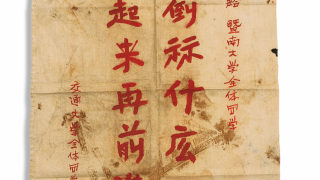 暨南大学全体同学
倒祘什庅
起来再前
交通大学全体同